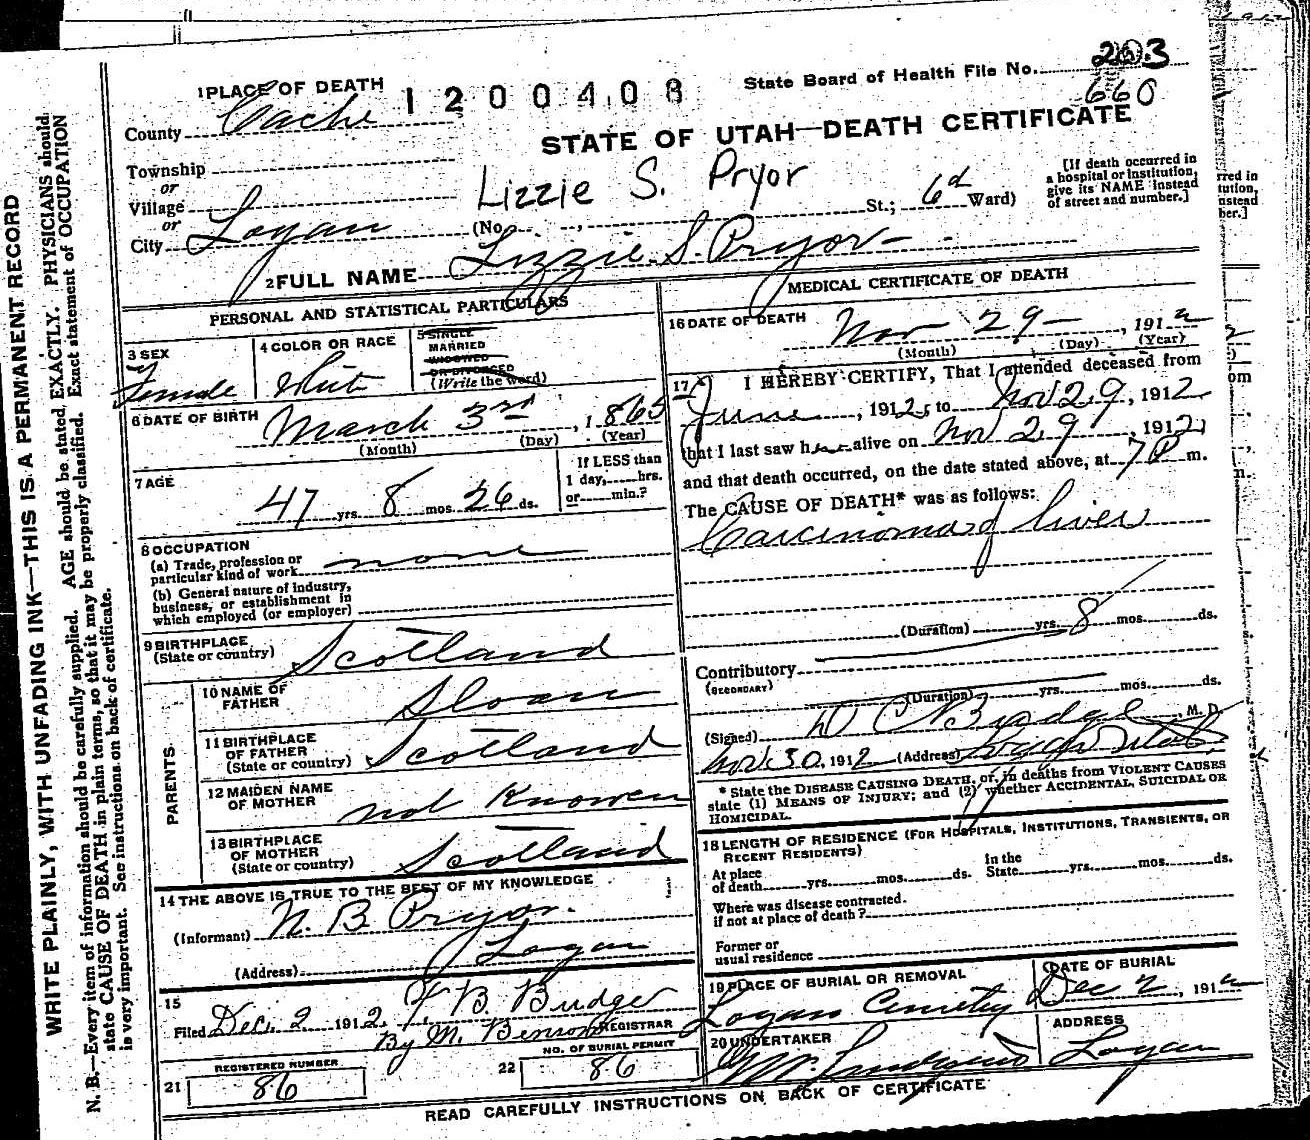 1 PLACE OF DEATH
1200408
State Board of Health File No. 203
660
County Cache
STATE OF UTAH—DEATH CERTIFICATE
Township
or
Village
or
City Logan
Lizzie S. Pryor
(No. , St.; 6d Ward)
[If death occurred in
a hospital or institution,
give its NAME instead
of street and number.]
2 FULL NAME Lizzie S. Pryor
PERSONAL AND STATISTICAL PARTICULARS
3 SEX
Female
4 COLOR OR RACE
White
5 SINGLE
MARRIED
WIDOWED
OR DIVORCED
(Write the word)
6 DATE OF BIRTH
March 3rd, 1865
(Month) (Day) (Year)
7 AGE
47 yrs. 8 mos. 26 ds.
If LESS than
1 day, hrs.
or min.?
8 OCCUPATION
(a) Trade, profession or
particular kind of work none
(b) General nature of industry,
business, or establishment in
which employed (or employer)
9 BIRTHPLACE
(State or country) Scotland
PARENTS
10 NAME OF
FATHER Sloan
11 BIRTHPLACE
OF FATHER
(State or country) Scotland
12 MAIDEN NAME
OF MOTHER not Knowen
13 BIRTHPLACE
OF MOTHER
(State or country) Scotland
14 THE ABOVE IS TRUE TO THE BEST OF MY KNOWLEDGE
(Informant) N. B. Pryor.
(Address) Logan
15
Filed Dec. 2 1912. T. B. Budge
By M. Benson REGISTRAR
REGISTERED NUMBER
21 86
NO. OF BURIAL PERMIT
22 86
MEDICAL CERTIFICATE OF DEATH
16 DATE OF DEATH
Nov 29 , 1912
(Month) (Day) (Year)
17 I HEREBY CERTIFY, That I attended deceased from
June , 1912, to Nov 29, 1912
that I last saw her alive on Nov 29, 1912,
and that death occurred, on the date stated above, at 7 P m.
The CAUSE OF DEATH* was as follows:
Carcinoma of liver
(Duration) yrs. 8 mos. ds.
Contributory
(SECONDARY)
(Duration) yrs. mos. ds.
(Signed) D C Budge, M. D.
Nov. 30, 1912 (Address) Logan Utah
* State the DISEASE CAUSING DEATH, or, in deaths from VIOLENT CAUSES
state (1) MEANS OF INJURY; and (2) whether ACCIDENTAL, SUICIDAL OR
HOMICIDAL.
18 LENGTH OF RESIDENCE (FOR HOSPITALS, INSTITUTIONS, TRANSIENTS, OR
RECENT RESIDENTS)
At place
of death yrs. mos. ds.
In the
State yrs. mos. ds.
Where was disease contracted.
if not at place of death?
Former or
usual residence
19 PLACE OF BURIAL OR REMOVAL
Logan Cemetery
DATE OF BURIAL
Dec 2, 1912
20 UNDERTAKER
ADDRESS
Logan
READ CAREFULLY INSTRUCTIONS ON BACK OF CERTIFICATE
WRITE PLAINLY, WITH UNFADING INK—THIS IS A PERMANENT RECORD
N. B.—Every item of information should be carefully supplied. AGE should be stated EXACTLY. PHYSICIANS should
state CAUSE OF DEATH in plain terms, so that it may be properly classified. Exact statement of OCCUPATION
is very important. See instructions on back of certificate.